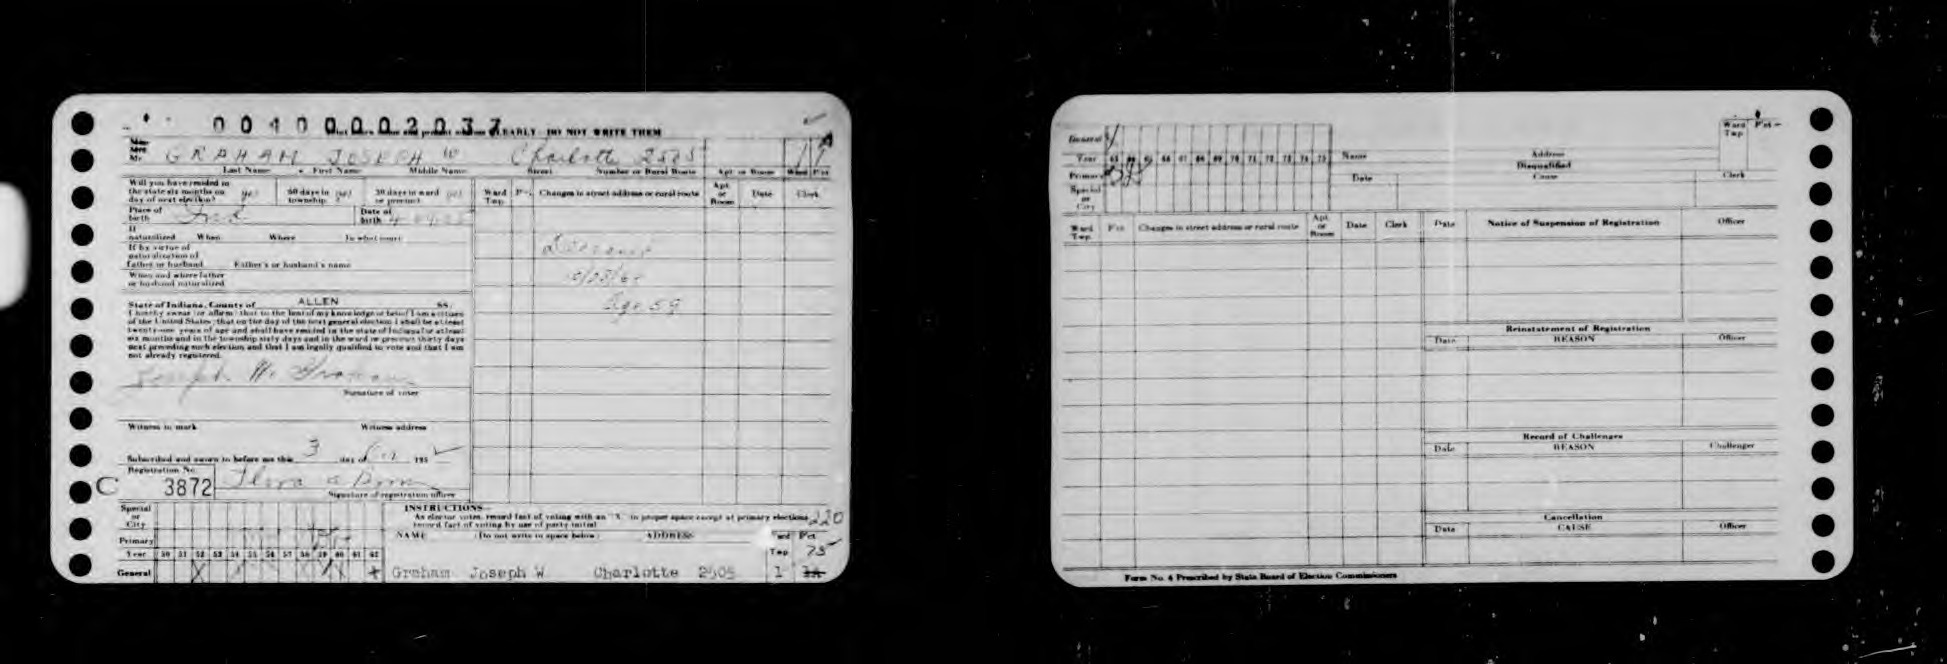 00400002037
CLEARLY - DO NOT WRITE THEM
Miss
Mrs.
Mr. GRAHAM JOSEPH W Charlotte 2505
Last Name First Name Middle Name Street Number or Rural Route Apt. or Room Ward Pct
Will you have resided in the state six months on day of next election? yes 60 days in township? yes 30 days in ward or precinct yes
Ward Twp. Pct. Changes in street address or rural route Apt. or Room Date Clerk
Place of birth Ind Date of birth
If naturalized When Where In what court
If by virtue of naturalization of father or husband Father's or husband's name
When and where father or husband naturalized
Deceased
Age 59
State of Indiana, County of ALLEN SS.
I hereby swear (or affirm) that to the best of my knowledge or belief I am a citizen
of the United States; that on the day of the next general election I shall be at least
twenty-one years of age and shall have resided in the state of Indiana for at least
six months and in the township sixty days and in the ward or precinct thirty days
next preceding such election and that I am legally qualified to vote and that I am
not already registered.
Joseph W. Graham
Signature of voter
Witness to mark Witness address
Subscribed and sworn to before me this 3 day of 195
Registration No.
C 3872
Signature of registration officer
Special or City
Primary
Year 50 51 52 53 54 55 56 57 58 59 60 61 62
General
INSTRUCTIONS—
As elector votes, record fact of voting with an "X" in proper space except at primary elections
record fact of voting by use of party initial
220
NAME (Do not write in space below) ADDRESS Ward Twp Pct
75
Graham Joseph W Charlotte 2505 1
General
Year 63 64 65 66 67 68 69 70 71 72 73 74 75
Primary
Special or City
Name Address Ward Twp Pct
Disqualified
Date Cause Clerk
Ward Twp. Pct Changes in street address or rural route Apt. or Room Date Clerk
Date Notice of Suspension of Registration Officer
Reinstatement of Registration
Date REASON Officer
Record of Challenges
Date REASON Challenger
Cancellation
Date CAUSE Officer
Form No. 4 Prescribed by State Board of Election Commissioners